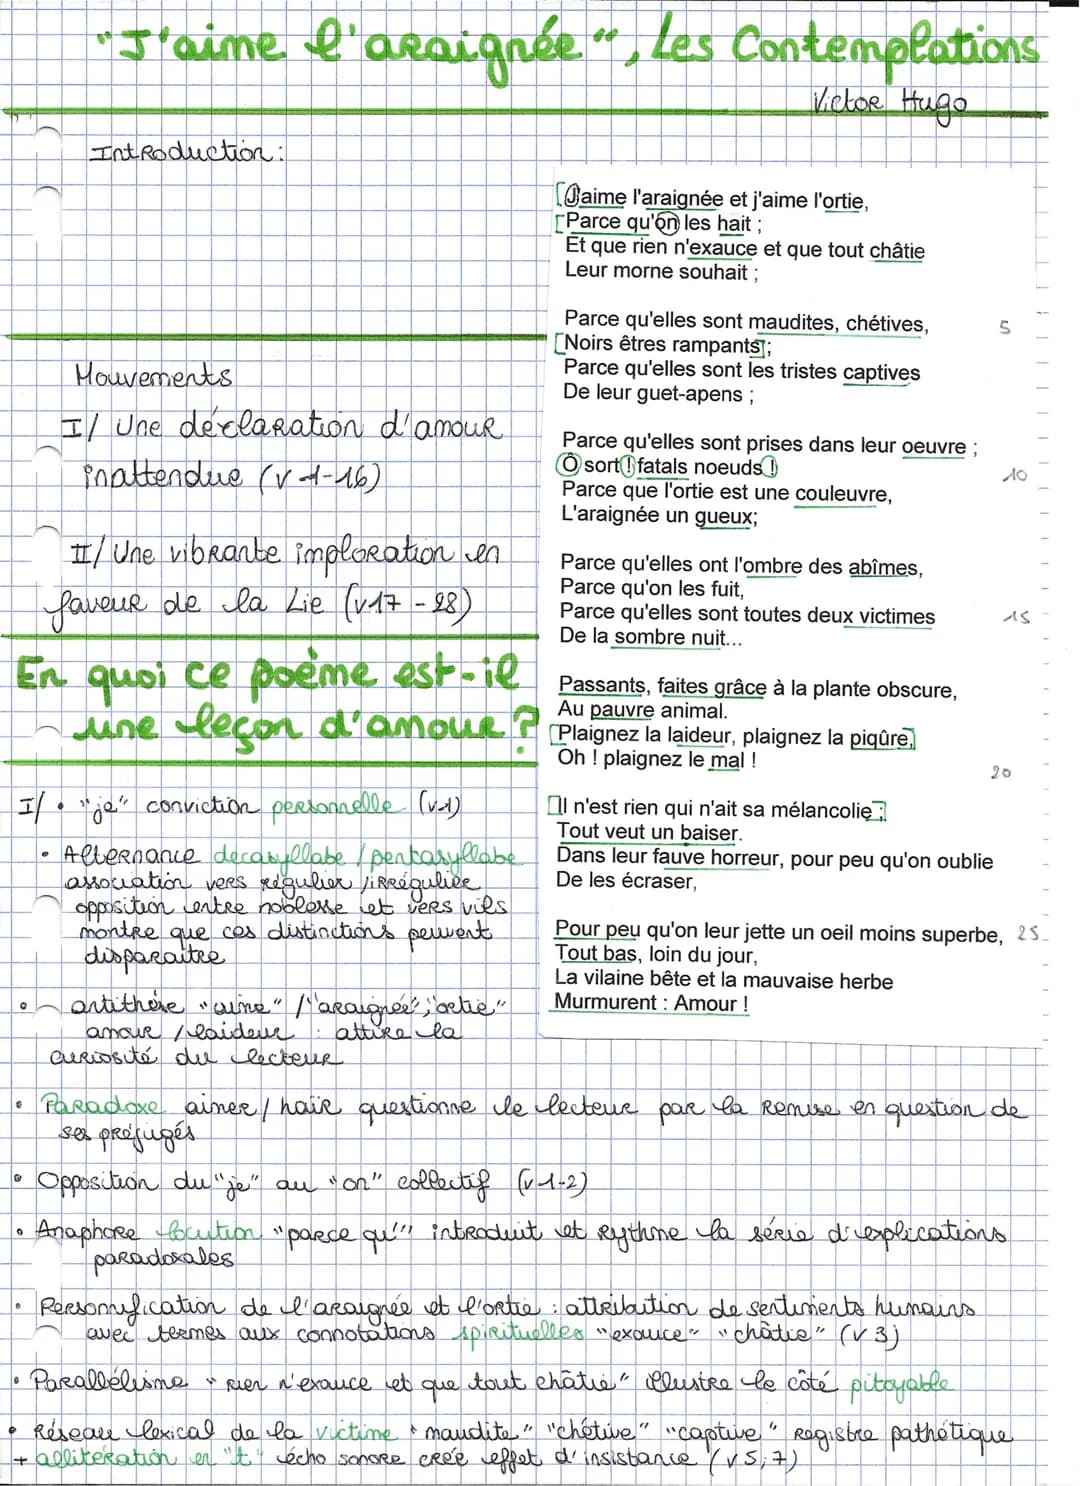 "J'aime l'araignée", Les Contemplations
Victor Hugo
Introduction :
J'aime l'araignée et j'aime l'ortie,
Parce qu'on les hait ;
Et que rien n'exauce et que tout châtie
Leur morne souhait ;
Parce qu'elles sont maudites, chétives,
5
Noirs êtres rampants ;
Parce qu'elles sont les tristes captives
De leur guet-apens ;
Parce qu'elles sont prises dans leur oeuvre ;
Ô sort ! fatals noeuds !
10
Parce que l'ortie est une couleuvre,
L'araignée un gueux;
Parce qu'elles ont l'ombre des abîmes,
Parce qu'on les fuit,
Parce qu'elles sont toutes deux victimes
15
De la sombre nuit...
Passants, faites grâce à la plante obscure,
Au pauvre animal.
Plaignez la laideur, plaignez la piqûre,
Oh ! plaignez le mal !
20
Il n'est rien qui n'ait sa mélancolie ;
Tout veut un baiser.
Dans leur fauve horreur, pour peu qu'on oublie
De les écraser,
Pour peu qu'on leur jette un oeil moins superbe,
25
Tout bas, loin du jour,
La vilaine bête et la mauvaise herbe
Murmurent : Amour !
Mouvements
I/ Une déclaration d'amour
inattendue (v 1-16)
II/ Une vibrante imploration en
faveur de la Lie (v17 - 28)
En quoi ce poème est-il
une leçon d'amour ?
I/ • "je" conviction personnelle (v1)
• Alternance decasyllabe / pentasyllabe
association vers régulier / irrégulier
opposition entre noblesse et vers vils
montre que ces distinctions peuvent
disparaitre
• antithèse "aime" / "araignée", "ortie"
amour / laideur : attire la
curiosité du lecteur
• Paradoxe aimer / haïr questionne le lecteur par la remise en question de
ses préjugés
• Opposition du "je" au "on" collectif (v 1-2)
• Anaphore locution "parce qu'" introduit et rythme la série d'explications
paradoxales
• Personnification de l'araignée et l'ortie : attribution de sentiments humains
avec termes aux connotations spirituelles "exauce" "châtie" (v 3)
• Parallélisme "rien n'exauce et que tout châtie" illustre le côté pitoyable
• Réseau lexical de la victime "maudite" "chétive" "captive" Registre pathétique
+ allitération en "t" écho sonore crée effet d'insistance (v 5, 7)